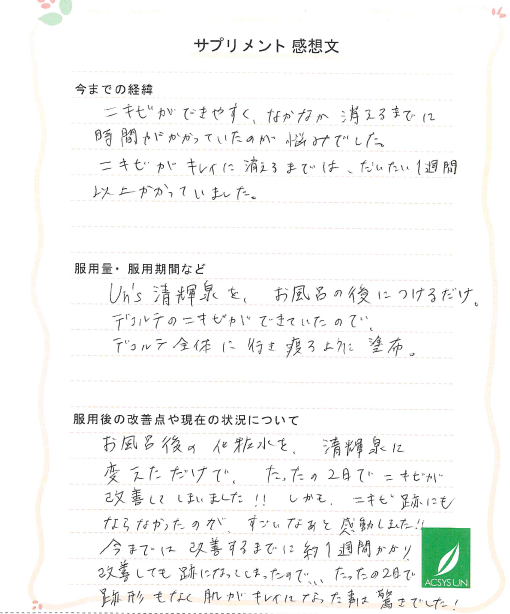 サプリメント 感想文
今までの経緯
ニキビができやすく、なかなか 消えるまでに
時間がかかっていたのが 悩みでした。
ニキビが キレイに 消えるまでは、だいたい 1週間
以上かかっていました。
服用量・服用期間など
Un's 清輝泉を、お風呂の後につけるだけ。
デコルテのニキビができていたので、
デコルテ全体に 行き渡るように 塗布。
服用後の改善点や現在の状況について
お風呂後の 化粧水を、清輝泉に
変えただけで、たったの2日で ニキビが
改善してしまいました!! しかも、ニキビ跡にも
ならなかったのが、すごいなぁと 感動しました!!
今までは 改善するまでに 約1週間かかり
改善しても 跡になってしまったので、、、たったの2日で
跡形もなく 肌がキレイになった事は 驚きでした!
ACSYS UN